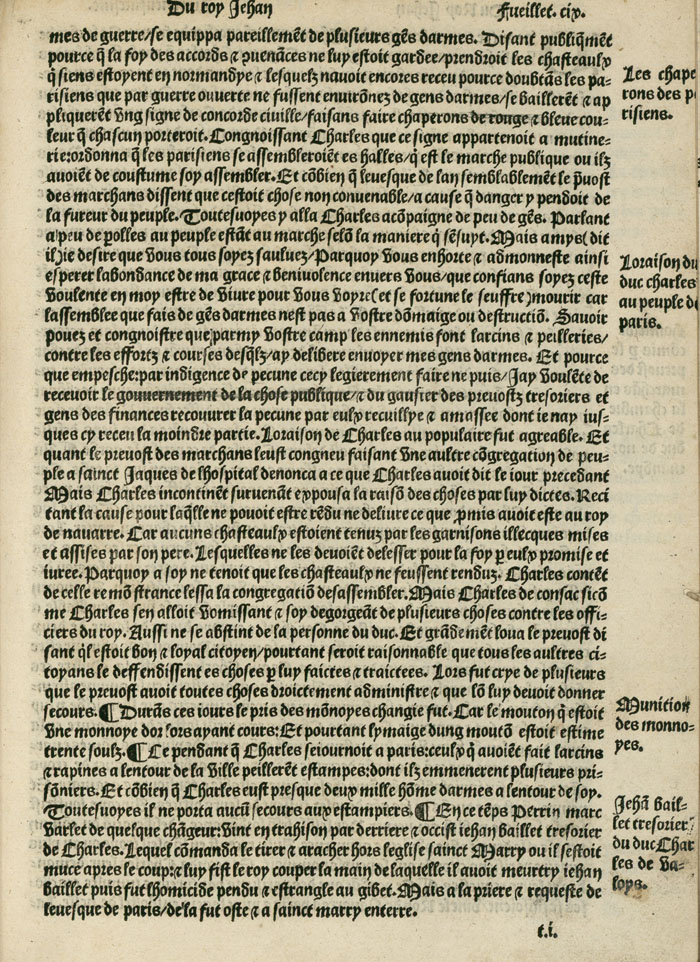 Du roy Jehan
Fueillet. cix.
mes de guerre/se equippa pareillement de plusieurs gẽs darmes. Disant publiqmẽt
pource q̃ la foy des accords ⁊ cõuenãces ne luy estoit gardee/prendroit les chasteaulx
q̃ siens estoyent en normandye ⁊ lesquelz nauoit encores receu pource doubtãs les pa-
risiens que par guerre ouuerte ne fussent enuirõnez de gens darmes/se baillerẽt ⁊ ap
pliquerẽt vng signe de concorde ciuille/faisans faire chaperons de rouge ⁊ bleue cou-
leur q̃ chascun porteroit. Congnoissant Charles que ce signe appartenoit a mutine-
rie:ordonna q̃ les parisiens se assembleroiẽt es halles/q̃ est le marche publique ou ilz
auoiẽt de coustume soy assembler. Et cõbien q̃ leuesque de lan semblablemẽt le p̃uost
des marchans dissent que cestoit chose non conuenable/a cause q̃ danger y pendoit de
la fureur du peuple. Toutesuoyes y alla Charles acõpaigne de peu de gẽs. Parlant
a peu de polles au peuple estãt au marche selõ la maniere q̃ sẽsuyt. Mais amys( dit
il)ie desire que vous tous soyez sauluez/Parquoy vous enhorte ⁊ admonneste ainsi
esperer labondance de ma grace ⁊ beniuolence enuers vous/que confians soyez ceste
voulente en moy estre de viure pour vous voyre(et se fortune le seuffre)mourir car
lassemblee que fais de gẽs darmes nest pas a vostre dõmaige ou destructiõ. Sauoir
pouez et congnoistre que parmy vostre camp les ennemis font larcins ⁊ peilleries/
contre les effortz ⁊ courses desq̃lz/ay delibere enuoyer mes gens darmes. Et pource
que empesche:par indigence de pecune cecy legierement faire ne puis/Jay voulẽte de
receuoir le gouuernement de la chose publique/⁊ du gausier des preuostz tresoriers et
gens des finances recouurer la pecune par eulx recuillye ⁊ amassee dont ie nay ius-
ques cy receu la moindre partie. Loraison de Charles au populaire fut agreable. Et
quant le preuost des marchans leust congneu faisant vne aultre cõgregation de peu-
ple a sainct Jaques de lhospital denonca a ce que Charles auoit dit le iour precedant
Mais Charles incontinẽt suruenãt expousa la raisõ des choses par luy dictes. Reci
tant la cause pour laq̃lle ne pouoit estre rẽdu ne deliure ce que p̃mis auoit este au roy
de nauarre. Car aucuns chasteaulx estoient tenuz par les garnisons illecques mises
et assises par son pere. Lesquelles ne les deuoiẽt delesser pour la foy p eulx promise et
iuree. Parquoy a soy ne tenoit que les chasteaulx ne feussent renduz. Charles contẽt
de celle remõstrance lessa la congregatiõ desassembler. Mais Charles de consac sicõ
me Charles sen alloit vomissant ⁊ soy degorgeãt de plusieurs choses contre les offi-
ciers du roy. Aussi ne se abstint de la personne du duc. Et grãdemẽt loua le preuost di
sant q̃l estoit bon ⁊ loyal citoyen/pourtant seroit raisonnable que tous les aultres ci-
toyans le deffendissent es choses p luy faictes ⁊ traictees. Lors fut crye de plusieurs
que le preuost auoit toutes choses droictement administre ⁊ que lõ luy deuoit donner
secours. ¶ Durãs ces iours le pris des mõnoyes changie fut. Car le mouton q̃ estoit
vne monnoye dor lors ayant cours: Et pourtant lymaige dung moutõ estoit estime
trente soulz. ¶ Ce pendant q̃ Charles seiournoit a paris:ceulx q̃ auoiẽt fait larcins
⁊ rapines a lentour de la ville peillerẽt estampes:dont ilz emmenerent plusieurs pri-
sõniers. Et cõbien q̃ Charles eust presque deux mille hõme darmes a lentour de soy.
Toutesuoyes il ne porta aucũ secours aux estampiers. ¶ En ce tẽps Perrin marc
varlet de quelque chãgeur:vint en trahison par derriere ⁊ occist iehan baillet tresorier
de Charles. Lequel cõmanda le tirer ⁊ aracher hors leglise sainct Marry ou il sestoit
muce apres le coup:⁊ luy fist le roy couper la main de laquelle il auoit meurtry iehan
baillet puis fut lhomicide pendu ⁊ estrangle au gibet. Mais a la priere ⁊ requeste de
leuesque de paris/de la fut oste ⁊ a sainct marry enterre.
t.i.
Les chape
rons des p
risiens.
Loraison du
duc charles
au peuple de
paris.
Munition
des monno-
yes.
Jehã bail-
let tresorier
du duc Char
les de va-
loys.